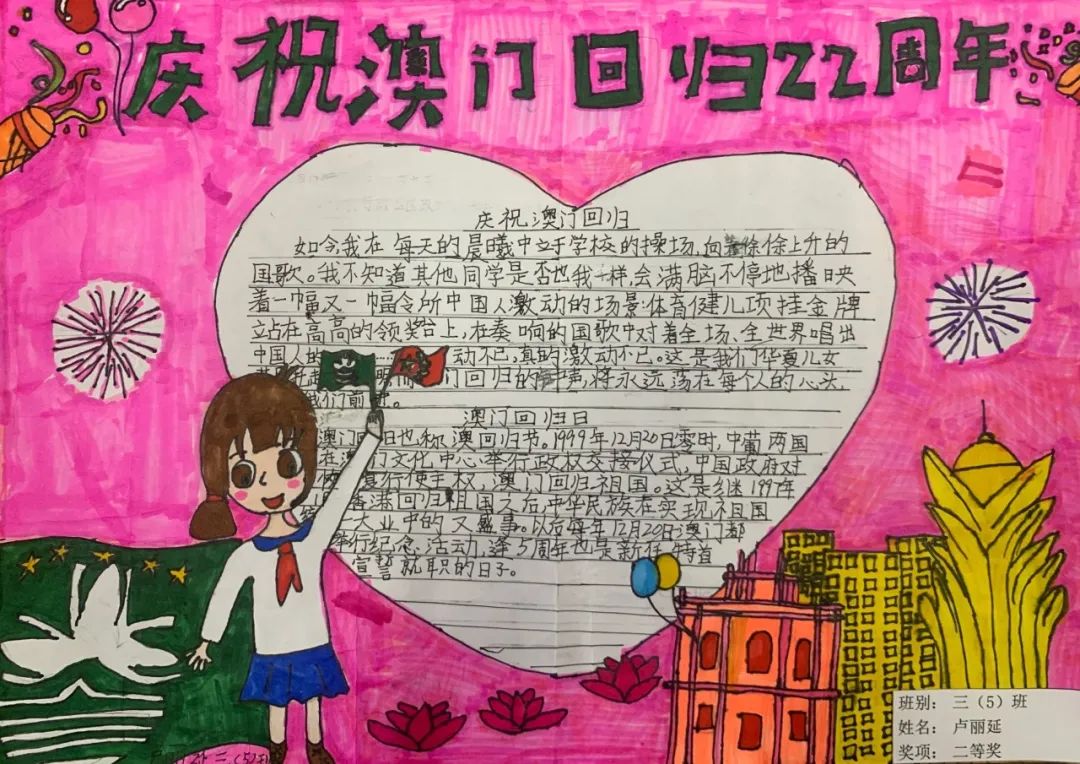 庆祝澳门回归22周年
庆祝澳门回归
如今我在每天的晨曦中立于学校的操场,向着徐徐上升的
国歌。我不知道其他同学是否也我一样,会满脑不停地播映
着一幅又一幅令所中国人激动的场景:体育健儿项挂金牌
立站在高高的领奖台上,在奏响的国歌中对着全场、全世界唱出
中国人的……动不已,真的激动不已。这是我们华夏儿女
门回归的钟声,将永远荡在每个人的心头,
我们前
澳门回归日
澳门回归日也称澳回归节。1999年12月20日零时,中葡两国
在澳门文化中心举行政权交接仪式,中国政府对
复行使主权,澳门回归祖国。这是继1997年
香港回归祖国之后,中华民族在实现祖国
大业中的又盛事。以后每年12月20日澳门都
举行纪念活动,逢5周年也是新任特首
宣誓就职的日子。
三(5)班
班别: 三(5)班
姓名: 卢丽延
奖项: 二等奖